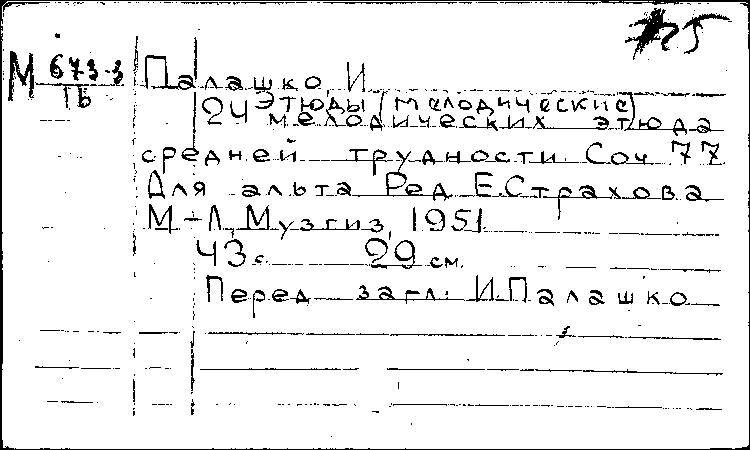 М 673-3
Палашко, И.
1Ь
Этюды (мелодические)
24 мелодических этюда
средней трудности. Соч 77
Для альта Ред Е.Страхова
М-Л, Музгиз, 1951
43 с. 29 см.
Перед загл: И.Палашко